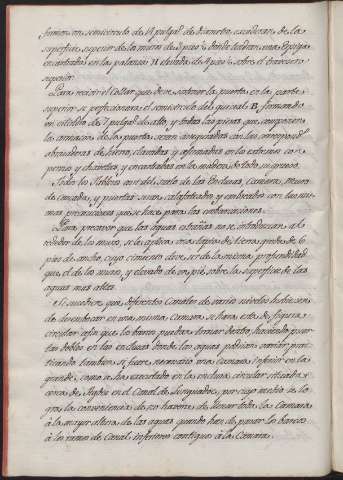 forman un semicirculo de 14 pulgads. de diametro excedente de la
superficie superior de los muros de pies; donde tendran una Espiga
encastrada en la palanca N elevada de 4 pies sobre el travesero
superior.
Para recivir el Collar que deve sostener la puerta en la parte
superior se perfeccionara el semicirculo del quicial B, formando
un estildo de 7 pulgads. de alto, y todas las piezas que componen
la armazon de la puerta seran aseguradas con las correspondtes.
abrazaderas de hierro, clavadas y afirmadas en los extremos con
pernos y chavetas, y encastradas en la madera de todo su grueso.
Todos los tablones asi del suelo de las Esclusas, Camara, Muros
de caveda, y puertas seran calafateados y embreados con las mis-
mas precauciones que se hace para las embarcaciones.
Para precaver que las aguas estrañas no se introduzcan al
rededor de los muros, se les aplicara una tapia de tierra greda de 6
pies de ancho, cuyo cimiento deve ser de la misma profundidad
que el de los muros, y elevado de un pie sobre la superficie de las
aguas mas altas.
Si sucediese que diferentes Canales de varios niveles hubiesen
de desembocar en una misma Camara se hara esta de figura
circular afin que los barcos puedan tornar dentro, haciendo puer-
tas dobles en las esclusas donde las aguas podrian variar, prac-
ticando tambien si fuere necesario una Camara inferior en la
grande, como se ha executado en la esclusa circular situada
cerca de Agde en el Canal de Languedoc, por cuyo medio se lo-
gra la conveniencia de no haverse de llenar toda la Camara
à la mayor altura de las aguas quando han de pasar los barcos
à los ramos de Canal inferiores contiguos à la Camara.